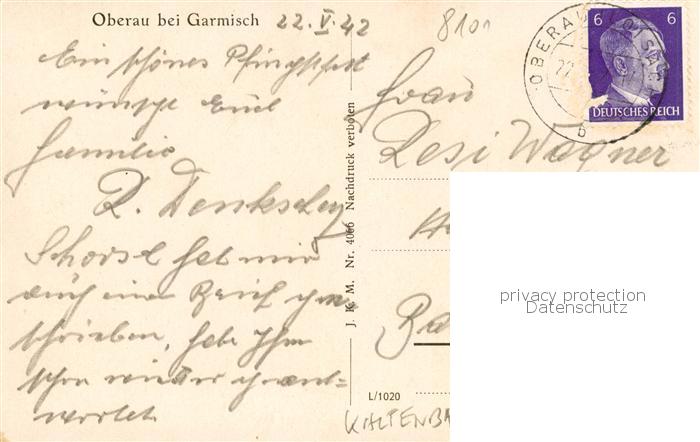 Oberau bei Garmisch 22.V.42
8101
Ein schönes Pfingstfest
wünscht Euch
Familie
Schorsl hat mir
auch einen Brief ge-
schrieben, habe Ihm
schon wieder geant-
wortet
J. K. M. Nr. 4066 Nachdruck verboten
L/1020
Frau
Resi Wagner
OBERAU
22.
b
6 6
DEUTSCHES REICH
privacy protection
Datenschutz